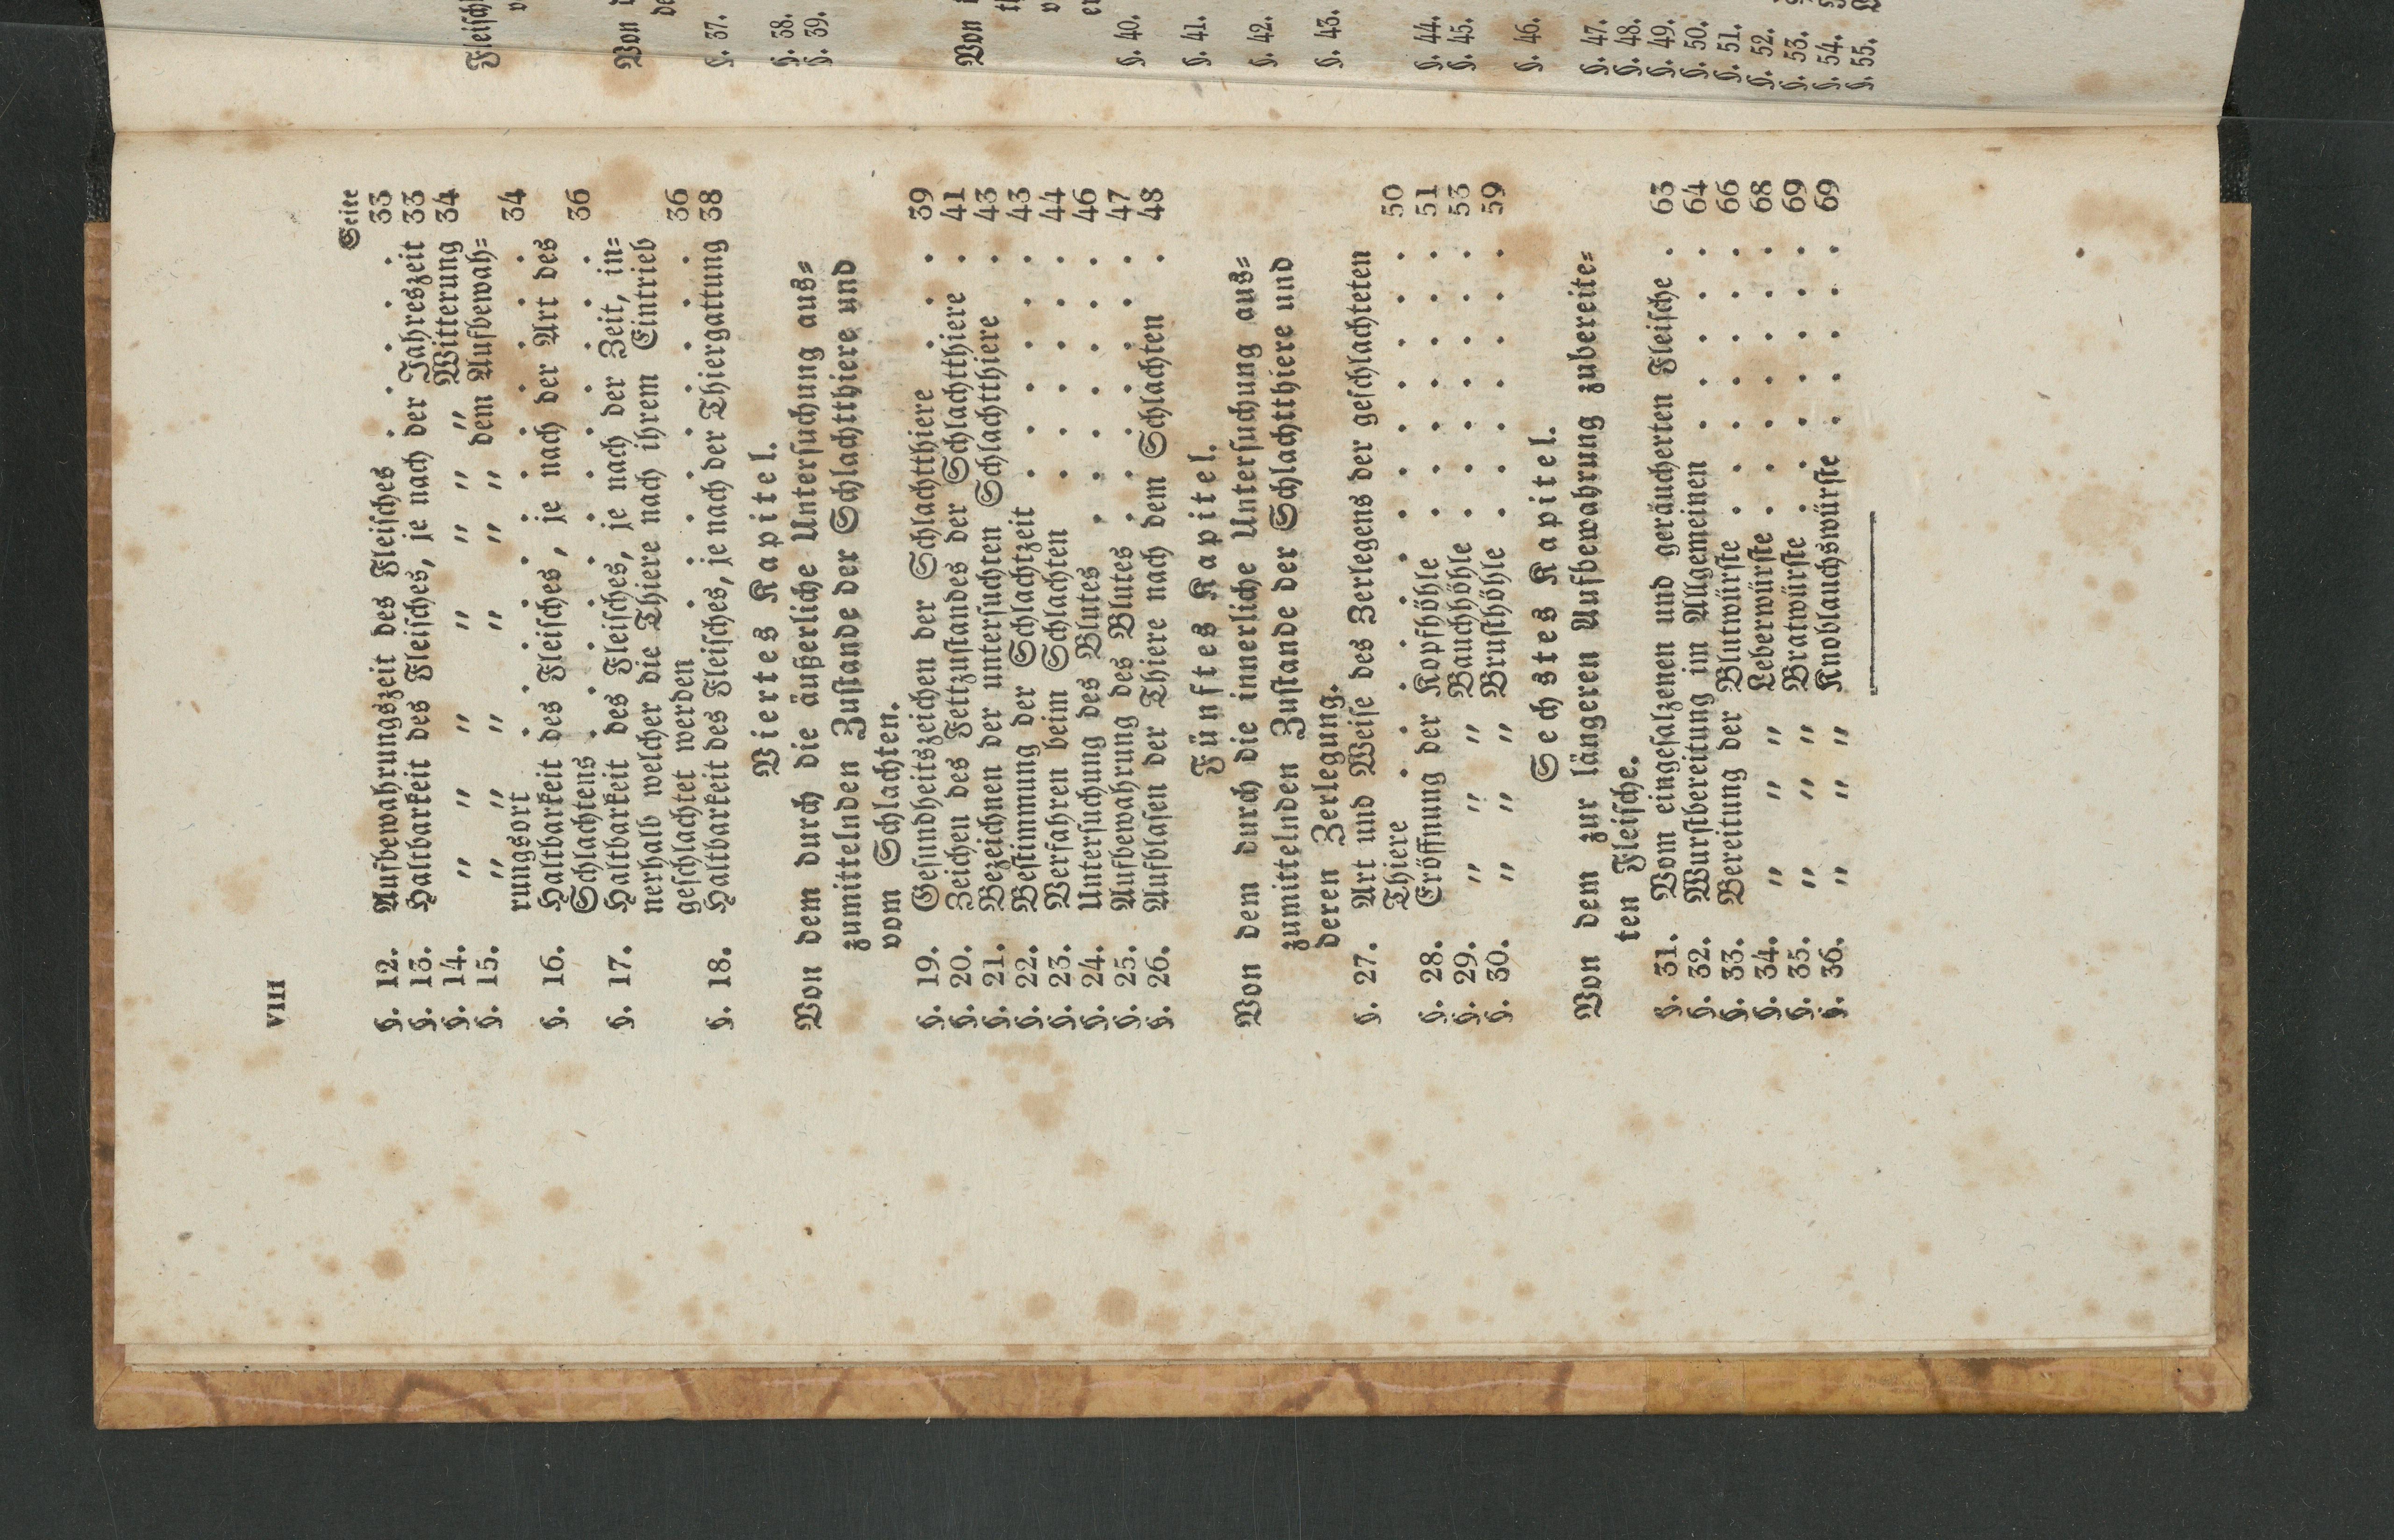 VIII
Seite
§. 12. Aufbewahrungszeit des Fleisches . . . . . 33
§. 13. Haltbarkeit des Fleisches, je nach der Jahreszeit 33
§. 14. " " " " " " " Witterung 34
§. 15. " " " " " " dem Aufbewah=
rungsort . . . . . . . . . . . . 34
§. 16. Haltbarkeit des Fleisches, je nach der Art des
Schlachtens . . . . . . . . . . . 36
§. 17. Haltbarkeit des Fleisches, je nach der Zeit, in=
nerhalb welcher die Thiere nach ihrem Eintrieb
geschlachtet werden . . . . . . . . . 36
§. 18. Haltbarkeit des Fleisches, je nach der Thiergattung 38
Viertes Kapitel.
Von dem durch die äußerliche Untersuchung aus=
zumittelnden Zustande der Schlachtthiere und
vom Schlachten.
§. 19. Gesundheitszeichen der Schlachtthiere . . . 39
§. 20. Zeichen des Fettzustandes der Schlachtthiere . 41
§. 21. Bezeichnen der untersuchten Schlachtthiere . 43
§. 22. Bestimmung der Schlachtzeit . . . . . . 43
§. 23. Verfahren beim Schlachten . . . . . . 44
§. 24. Untersuchung des Blutes . . . . . . . 46
§. 25. Aufbewahrung des Blutes . . . . . . . 47
§. 26. Aufblasen der Thiere nach dem Schlachten . 48
Fünftes Kapitel.
Von dem durch die innerliche Untersuchung aus=
zumittelnden Zustande der Schlachtthiere und
deren Zerlegung.
§. 27. Art und Weise des Zerlegens der geschlachteten
Thiere . . . . . . . . . . . . . 50
§. 28. Eröffnung der Kopfhöhle . . . . . . . 51
§. 29. " " " Bauchhöhle . . . . . . . 53
§. 30. " " " Brusthöhle . . . . . . . 59
Sechstes Kapitel.
Von dem zur längeren Aufbewahrung zubereite=
ten Fleische.
§. 31. Vom eingesalzenen und geräucherten Fleische . 63
§. 32. Wurstbereitung im Allgemeinen . . . . . 64
§. 33. Bereitung der Blutwürste . . . . . . . 66
§. 34. " " " Leberwürste . . . . . . . 68
§. 35. " " " Bratwürste . . . . . . . 69
§. 36. " " " Knoblauchswürste . . . . . 69
Fleisch
Von
§. 37.
§. 38.
§. 39.
Von
§. 40.
§. 41.
§. 42.
§. 43.
§. 44.
§. 45.
§. 46.
§. 47.
§. 48.
§. 49.
§. 50.
§. 51.
§. 52.
§. 53.
§. 54.
§. 55.